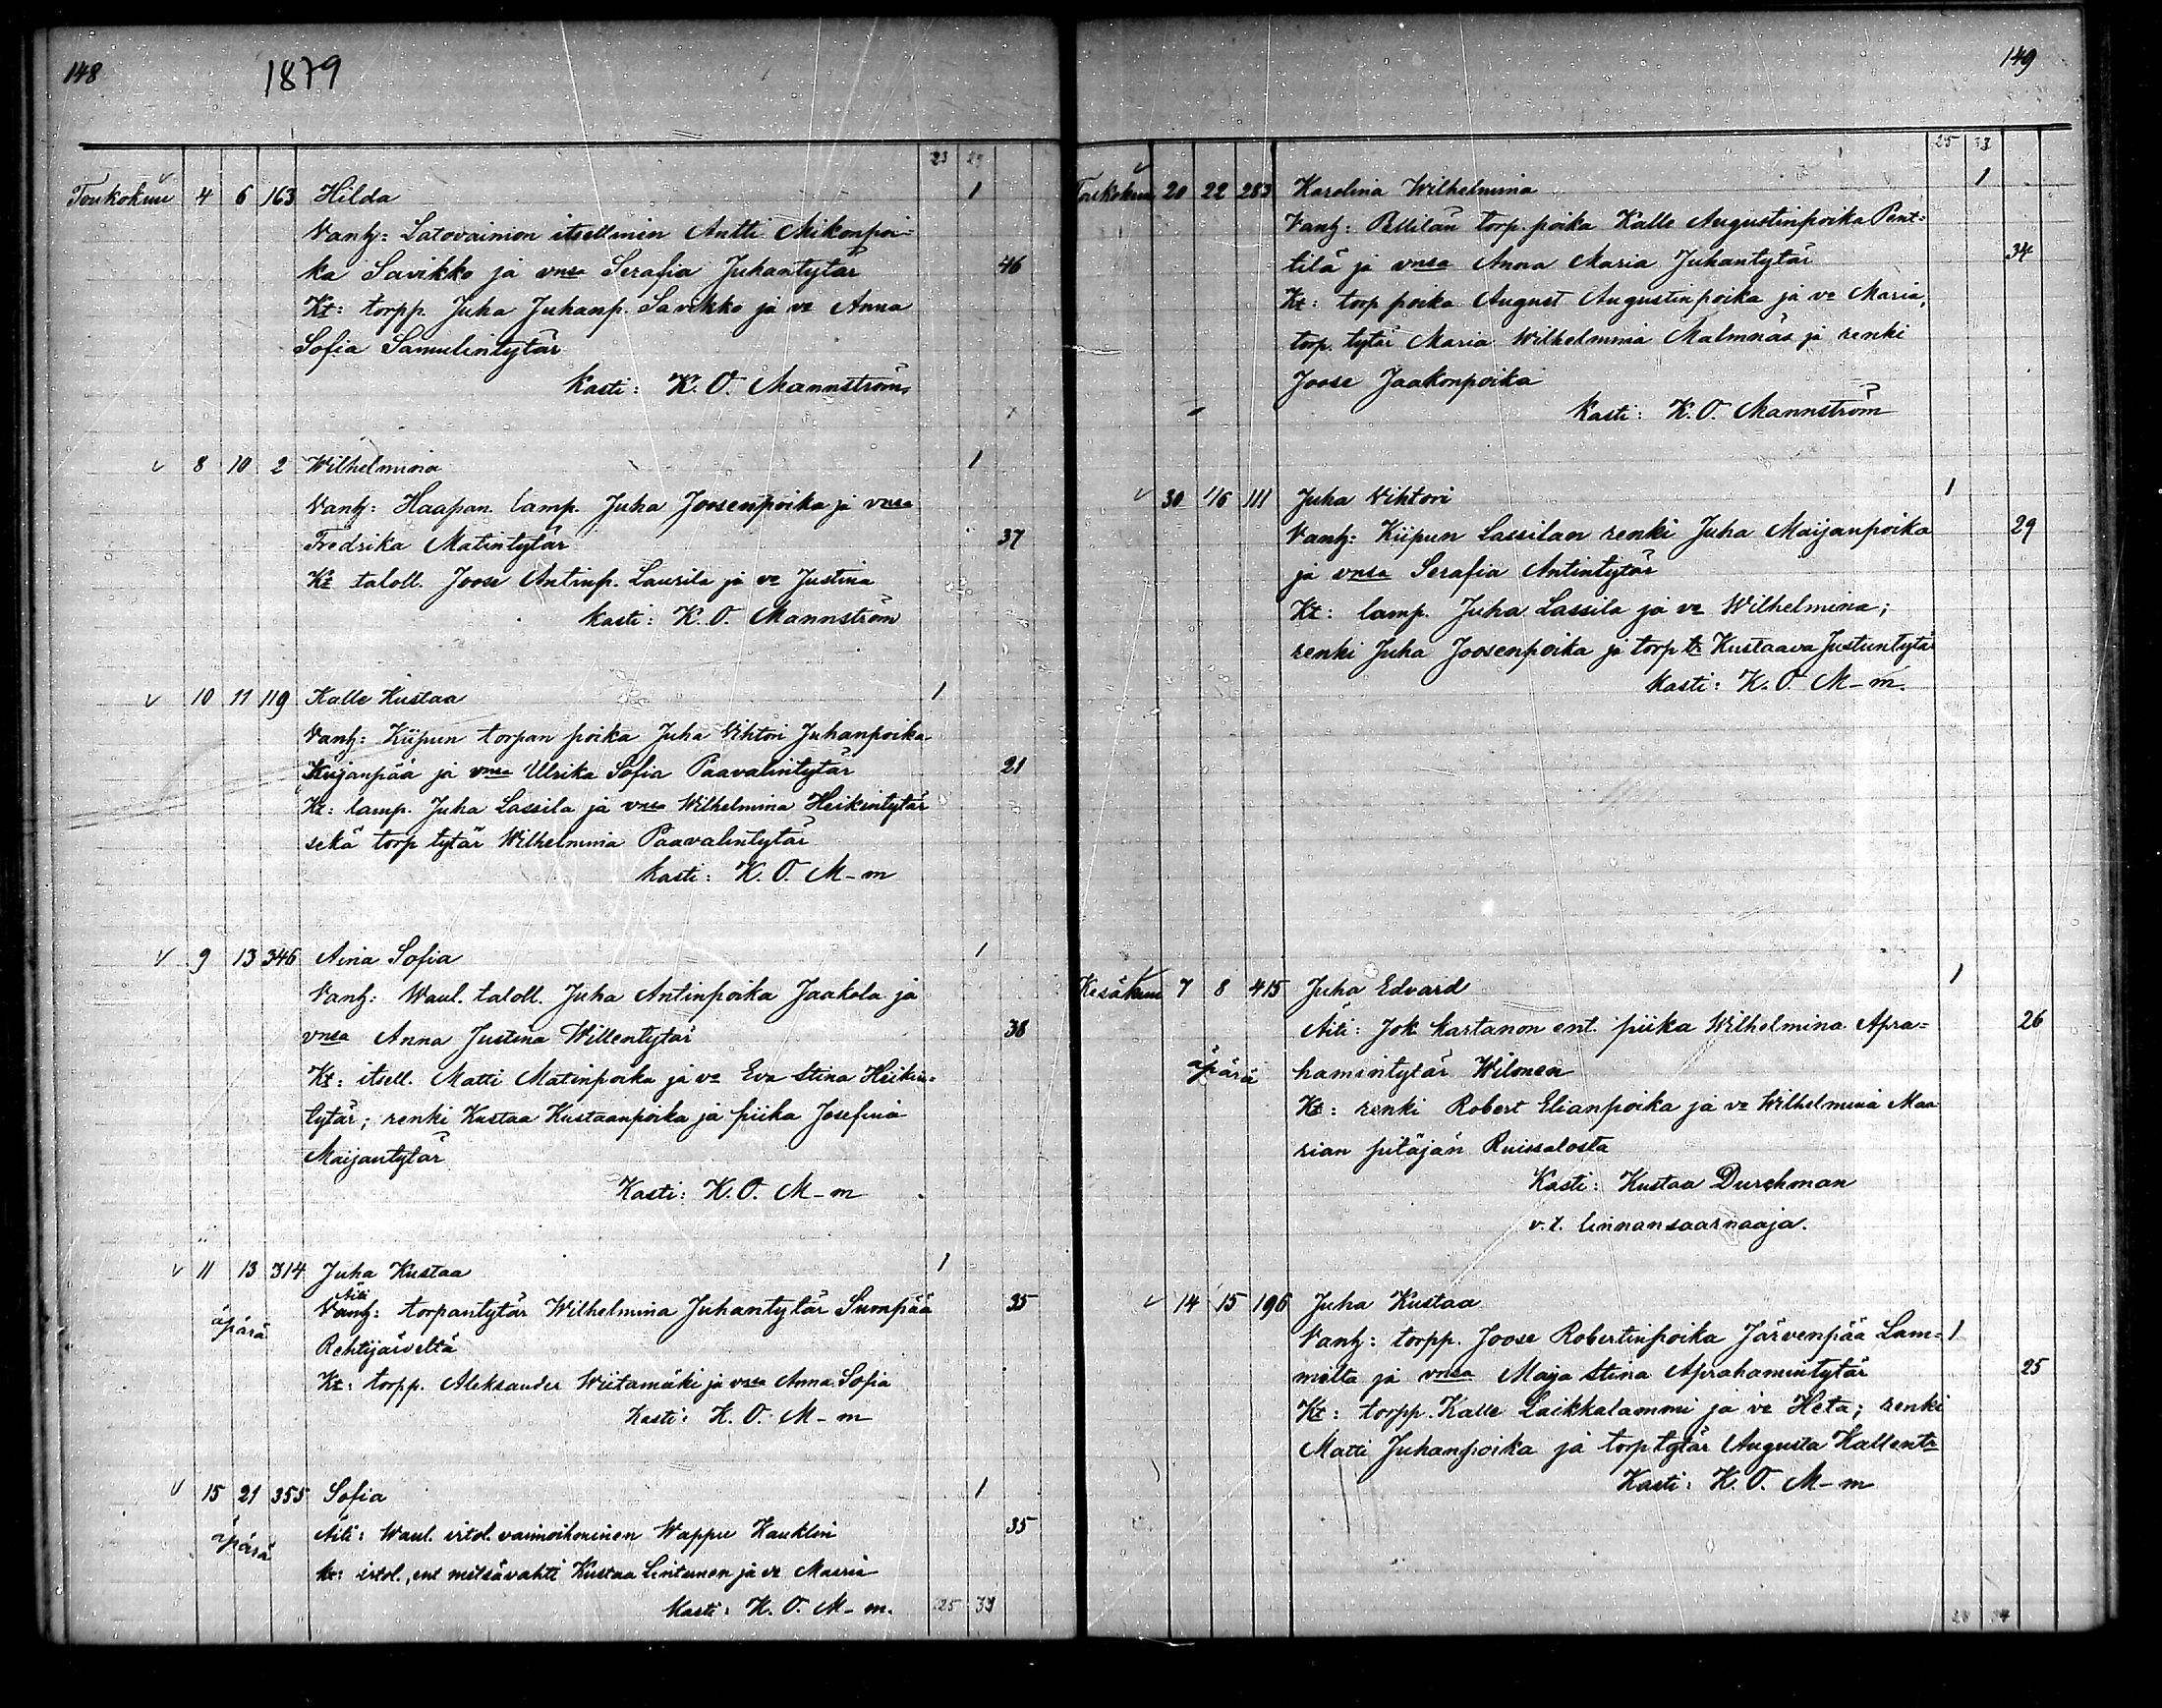 148 1879
23 29
Toukokuu 4 6 163 Hilda 1
Vanh: Latovainion itsellinen Antti Mikonpoi-
ka Savikko ja vnsa Serafia Juhantytär 46
Kt: torpp. Juha Juhanp. Savikko ja vo Anna
Sofia Samulintytär
Kasti: K. O. Mannström
8 10 2 Wilhelmina 1
Vanh: Haapan. lamp. Juha Joosenpoika ja vnsa
Fredrika Matintytär 37
Kt taloll. Joose Antinp. Laurila ja vo Justina
Kasti: K. O. Mannström
10 11 119 Kalle Kustaa 1
Vanh: Kiipun torpan poika Juha Vihtori Juhanpoika
Kujanpää ja vnsa Ulrika Sofia Paavalintytär 21
Kt: lamp. Juha Lassila ja vnsa Wilhelmina Heikintytär
sekä torp tytär Wilhelmina Paavalintytär
Kasti: K. O. M-m
9 13 346 Aina Sofia 1
Vanh: Waul. taloll. Juha Antinpoika Jaakola ja
vnsa Anna Justina Willentytär 38
Kt: itsell. Matti Matinpoika ja vo Eva Stina Heikin-
tytär; renki Kustaa Kustaanpoika ja piika Josefina
Maijantytär
Kasti: K. O. M-m
11 13 314 Juha Kustaa 1
Äiti
äpärä Vanh: torpantytär Wilhelmina Juhantytär Sumpää 35
Rehtijärveltä
Kt: torpp. Aleksander Wiitamäki ja vnsa Anna Sofia
Kasti: K. O. M-m
15 21 355 Sofia 1
äpärä Äiti: Waul. irtol. vaimoihminen Wappu Hauklin 35
Kt: irtol., ent metsävahti Kustaa Lintunen ja vo Maria
Kasti: K. O. M-m. 25 33
149
25 33
Toukokuu 20 22 283 Karolina Wilhelmina 1
Vanh: Pellilän torp. poika Kalle Augustinpoika Pent-
tilä ja vnsa Anna Maria Juhantytär 34
Kt: torp poika August Augustinpoika ja vo Maria,
torp. tytär Maria Wilhelmina Malmnäs ja renki
Joose Jaakonpoika
Kasti: K. O. Mannström
30 1/6 111 Juha Vihtori 1
Vanh: Kiipun Lassilan renki Juha Maijanpoika 29
ja vnsa Serafia Antintytär
Kt: lamp. Juha Lassila ja vo Wilhelmina;
renki Juha Joosenpoika ja torp tr Kustaava Justuntytär
Kasti: K. O. M-m.
Kesäkuu 7 8 415 Juha Edvard 1
Äiti: Jok. kartanon ent. piika Wilhelmina Apra- 26
äpärä hamintytär Wilonen
Kt: renki Robert Elianpoika ja vo Wilhelmina Maa
rian pitäjän Ruissalosta
Kasti: Kustaa Durchman
v.t. linnansaarnaaja.
14 15 196 Juha Kustaa
Vanh: torpp. Joose Robertinpoika Järvenpää Lam- 1
milta ja vnsa Maija Stina Aprahamintytär 25
Kt: torpp. Kalle Laikkalammi ja vo Heta; renki
Matti Juhanpoika ja torp tytär Augusta Kallentr
Kasti: K. O. M-m